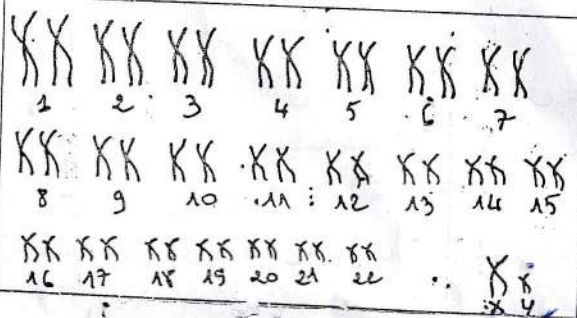 1 2 3 4 5 6 7
8 9 10 11 12 13 14 15
16 17 18 19 20 21 22
X Y